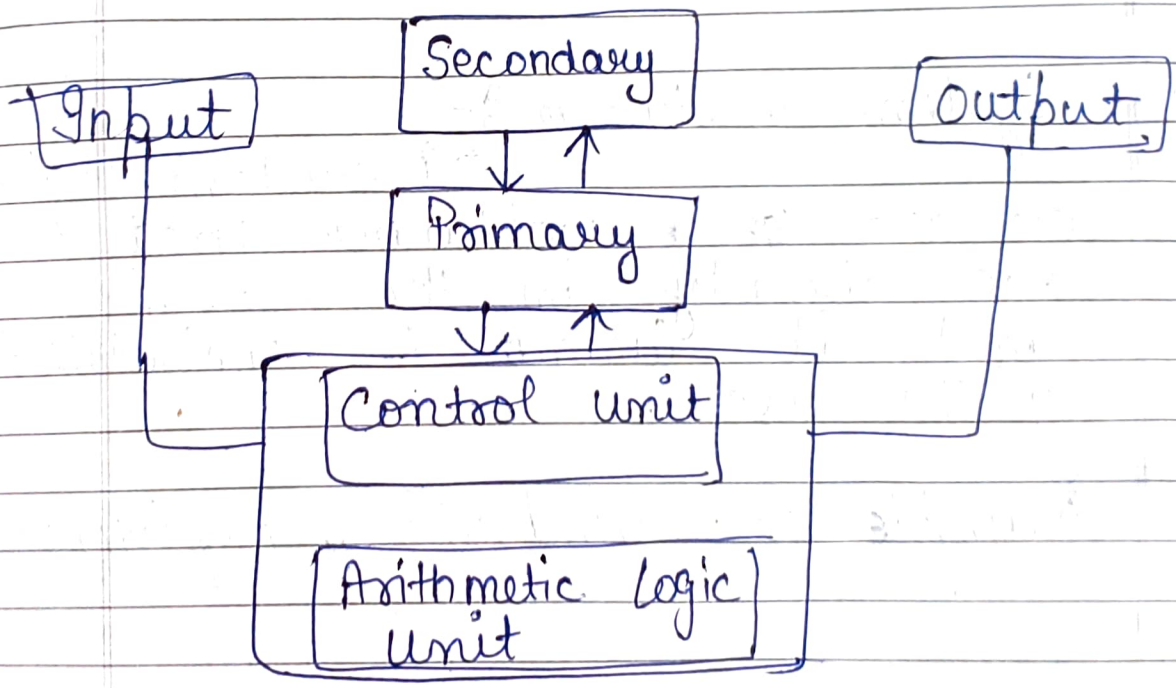 Secondary
Input
Output
Primary
Control unit
Arithmetic Logic
unit